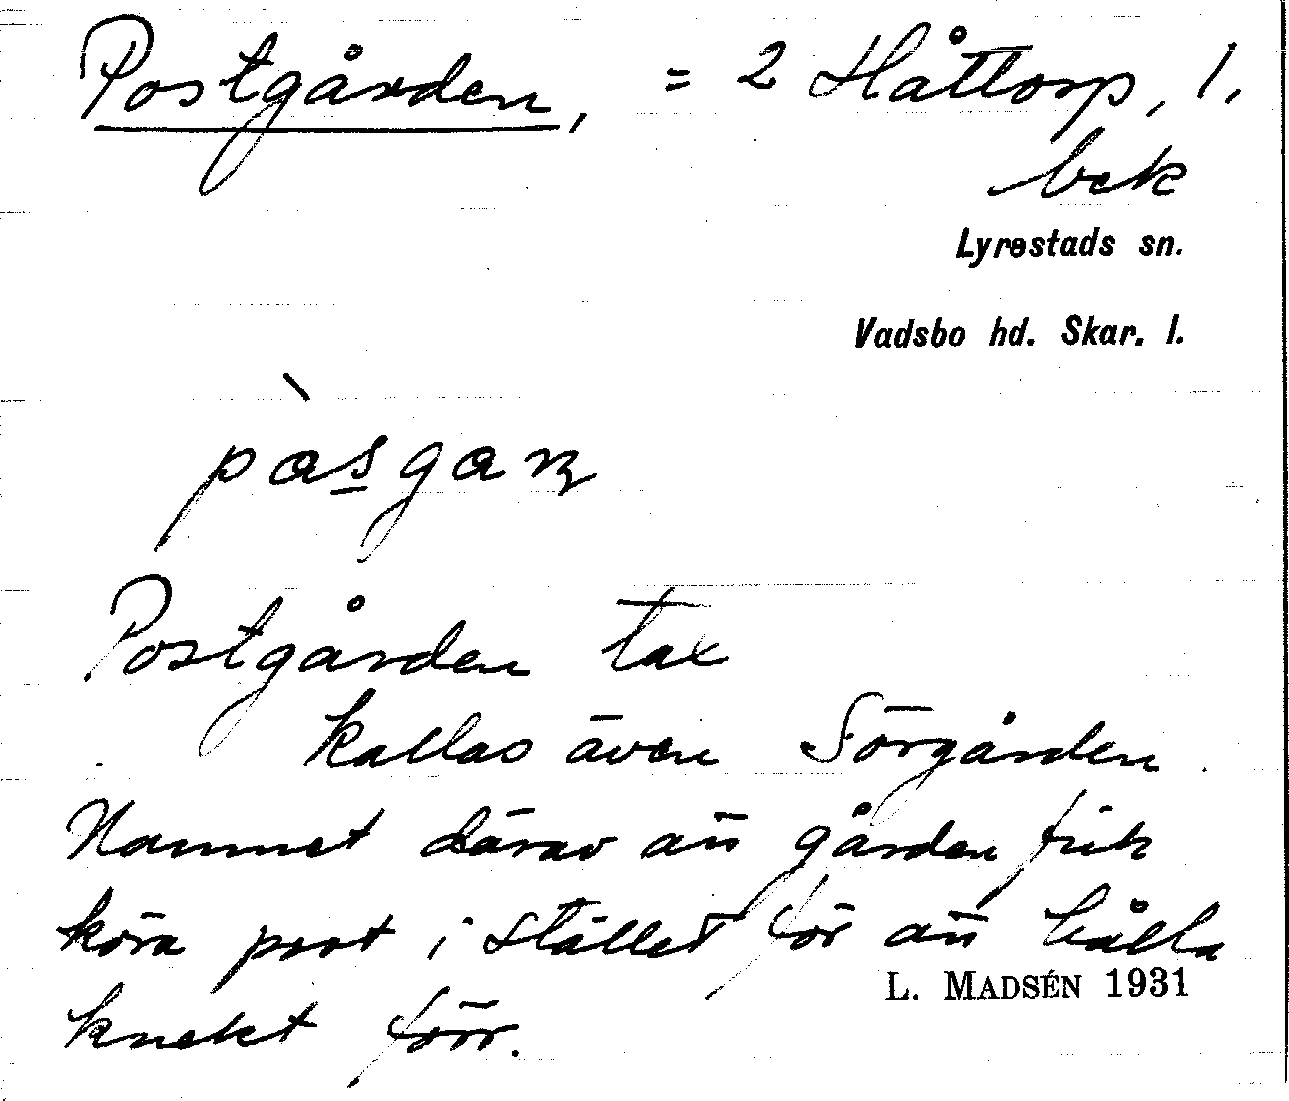 Postgården, = 2 Håttorp, 1,
bek
Lyrestads sn.
Vadsbo hd. Skar. l.
Postgården tax
kallas även Sörgården.
Namnet därav att gården fick
köra post i stället för att hålla
knekt förr.
L. MADSÉN 1931